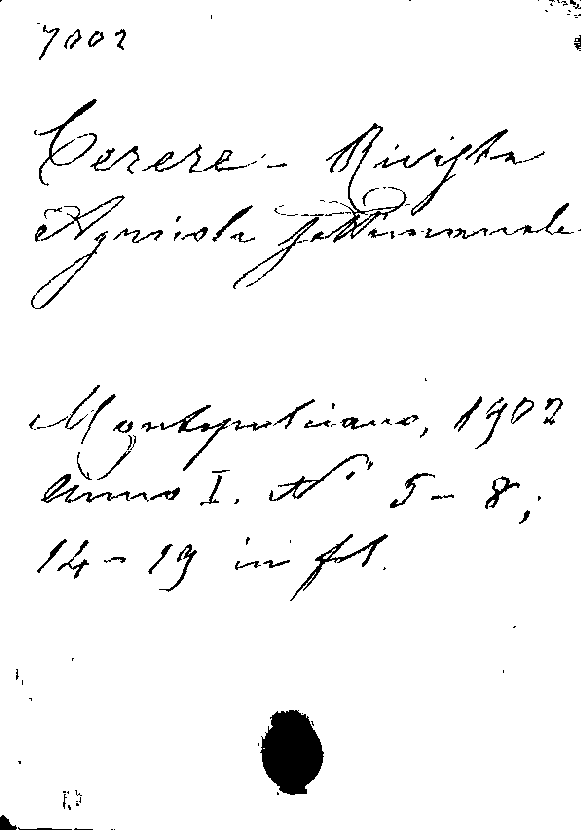 7002
Cerere - Rivista
Agricola settimanale
Montepulciano, 1902
Anno I. Nⁱ 5-8;
14-19 in fol.